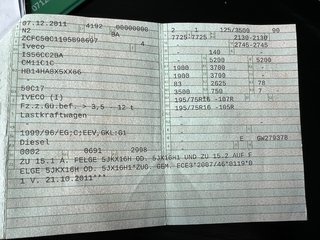 07.12.2011 4192 00000000
N2 BA
ZCFC50C1105898697 4
Iveco
IS56CC2BA
CM11C1C
HB14HA8X5XX66
50C17
IVECO (I)
Fz.z.Gü.bef. > 3,5 - 12 t
Lastkraftwagen
-
1999/96/EG;C;EEV,GKL:G1
Diesel
0002 0691 2998
ZU 15.1 A. FELGE 5JX16H OD. 5JX16H1 UND ZU 15.2 AUF F
ELGE 5JKX16H OD. 5JX16H1*ZUG. GEM. ECE3*2007/46*0119*B
1 V. 21.10.2011***
2 1 125/3500 90
7725 7725 2130-2130
- 2745-2745
140
- 5200 5200
1900 3700 -
1900 3700 -
83 2625 78
3500 750 7
195/75R16 -107R
195/75R16 -105R
-
E GW279378